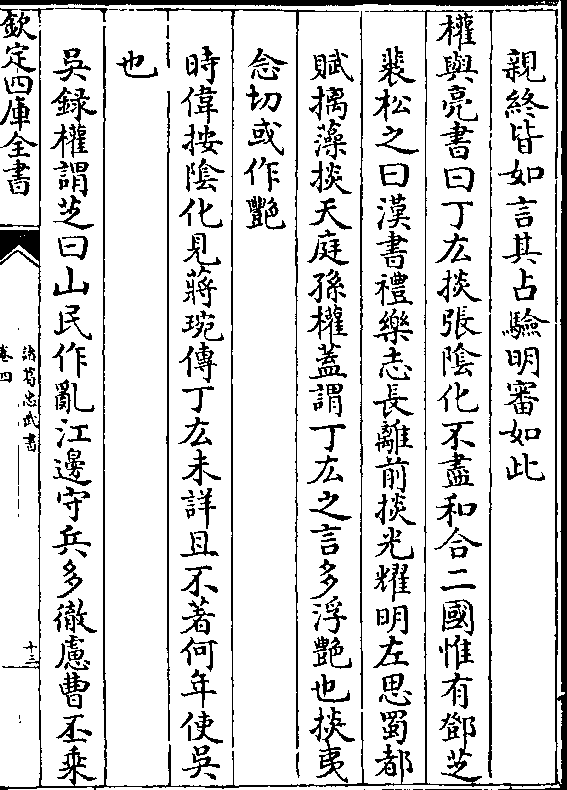 親終皆如言其占驗明審如此
權與亮書曰丁厷掞張陰化不盡和合二國惟有鄧芝
裴松之曰漢書禮樂志長離前掞光耀明左思蜀都
賦摛藻掞天庭孫權蓋謂丁厷之言多浮豔也掞夷
念切或作豔
時偉按陰化見蔣琬傳丁厷未詳且不著何年使吳
也
吳録權謂芝曰山民作亂江邊守兵多徹慮曹丕乘
欽定四庫全書
諸葛忠武書
卷四
十三